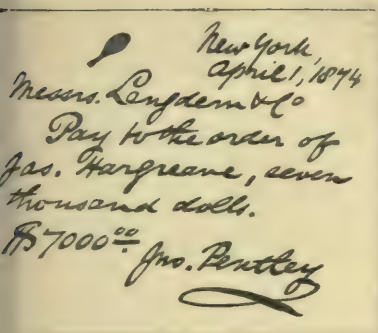 New York,
April 1, 1874
Messrs. Langdem & Co
Pay to the order of
Jas. Hargreave, seven
thousand dolls.
$7000.00
Jno. Pentley